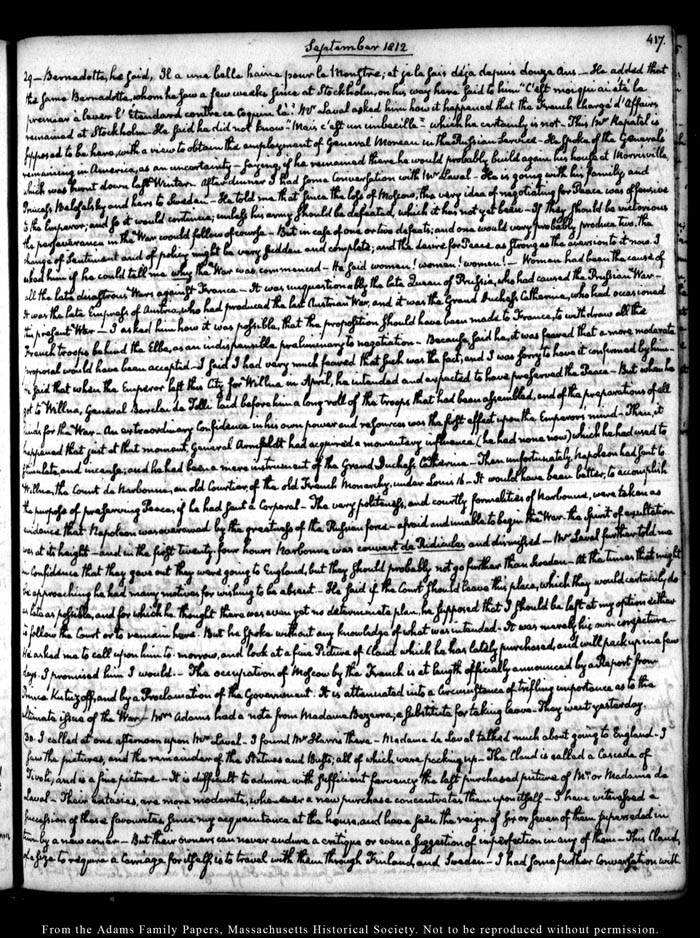 September 1812
417.
29 — Bernadotte, he said, Il a une belle haine pour le Monstre; et je le sais déja depuis douze Ans — He added that
the same Bernadotte, whom he saw a few weeks since at Stockholm, on his way here said to him "C'est moi qui ai été le
premier à lever l'Etendard contre ce coquin là." Mr Laval asked him how it happened that the French Chargé d'Affairs
remained at Stockholm — He said he did not know "Mais c'est un imbecille" — which he certainly is not — This Mr Rapatel is
supposed to be here, with a view to obtain the employment of General Moreau in the Russian Service — He spoke of the General's
remaining in America, as an uncertainty — saying, if he remained there he would probably build again his house at Morrisville,
which was burnt down last Winter. After dinner I had some Conversation with Mr Laval — He is going with his family, and
Princess Beloselsky and hers to Sweden — He told me that since the loss of Moscow, the very idea of negotiating for Peace was offensive
to the Emperor; and so it would continue, unless his army should be defeated, which it has not yet been — If they should be victorious
the perseverance in the War would follow of course — But in case of one or two defeats; and one would very probably produce two, the
change of Sentiment and of policy might be very sudden and complete; and the desire for Peace as strong as the aversion to it now. I
asked him if he could tell me why the War was commenced — He said women! women! women! — Women had been the cause of
all the late disastrous Wars against France — It was unquestionably the late Queen of Prussia, who had caused the Prussian War —
It was the late Empress of Austria, who had produced the last Austrian War, and it was the Grand Duchess Catherine, who had occasioned
this present War — I asked him how it was possible, that the proposition should have been made to France, to withdraw all the
French troops behind the Elbe, as an indispensible preliminary to negotiation — Because, said he, it was feared that a more moderate
proposal would have been accepted — I said I had very much feared that such was the fact; and I was sorry to have it confirmed by him —
He said that when the Emperor left this City for Willna in April, he intended and expected to have preserved the Peace — But when he
got to Willna, General Barclai de Tolli laid before him a long roll of the troops that had been assembled, and of the preparations of all
kinds for the War — An extraordinary Confidence in his own power and resources was the first effect upon the Emperor's mind — Then, it
happened that just at that moment, General Armfeldt had acquired a momentary influence, (he had none now) which he had used to
stimulate, and incense; and he had been a mere instrument of the Grand Duchess Catherine — Then unfortunately Napoleon had sent to
Willna, the Count de Narbonne, an old Courtier, of the old French Monarchy, under Louis 16 — It would have been better, to accomplish
the purpose of preserving Peace, if he had sent a Corporal — The very politeness, and courtly formalities of Narbonne, were taken as
evidence that Napoleon was overawed by the greatness of the Russian force — afraid and unable to begin the War. The spirit of exultation
was at its height — and in the first twenty four hours Narbonne was couvert de Ridicules and dismissed — Mr Laval further told me
in Confidence that they gave out they were going to England, but they should probably not go further than Sweden — At the times that might
be approaching he had many motives for wishing to be absent — He said if the Court should leave this place, which they would certainly do
as late as possible, and for which he thought there was even yet no determinate plan, he supposed that I should be left at my option either
to follow the Court or to remain here. But he spoke without any knowledge of what was intended — It was merely his own conjecture —
He asked me to call upon him to-morrow, and look at a fine Picture of Claud which he has lately purchased, and will pack up in a few
days. I promised him I would. — The occupation of Moscow by the French is at length officially announced by a Report from
Prince Kutuzoff, and by a Proclamation of the Government. It is attenuated into a Circumstance of trifling importance as to the
ultimate issue of the War. Mrs Adams had a note from Madame Bezerra; a substitute for taking leave — They went yesterday.
30. I called at one afternoon upon Mr Laval — I found Mr Harris there — Madame de Laval talked much about going to England — I
saw the pictures, and the remainder of the Statues and Busts; all of which were packing up — The Claud is called a Cascade of
Tivoli, and is a fine picture — It is difficult to admire with sufficient fervency the last purchased picture of Mr or Madame de
Laval — Their extasies, are more moderate, whenever a new purchase concentrates them upon itself — I have witnessed a
succession of these favourites, since my acquaintance at the house, and have seen the reign of six or seven of them superseded in
turn by a new comer — But their owners can never endure a critique or even a suggestion of imperfection in any of them — This Claud,
of a size to require a Carriage for itself, is to travel with them through Finland, and Sweden — I had some further Conversation with
From the Adams Family Papers, Massachusetts Historical Society. Not to be reproduced without permission.